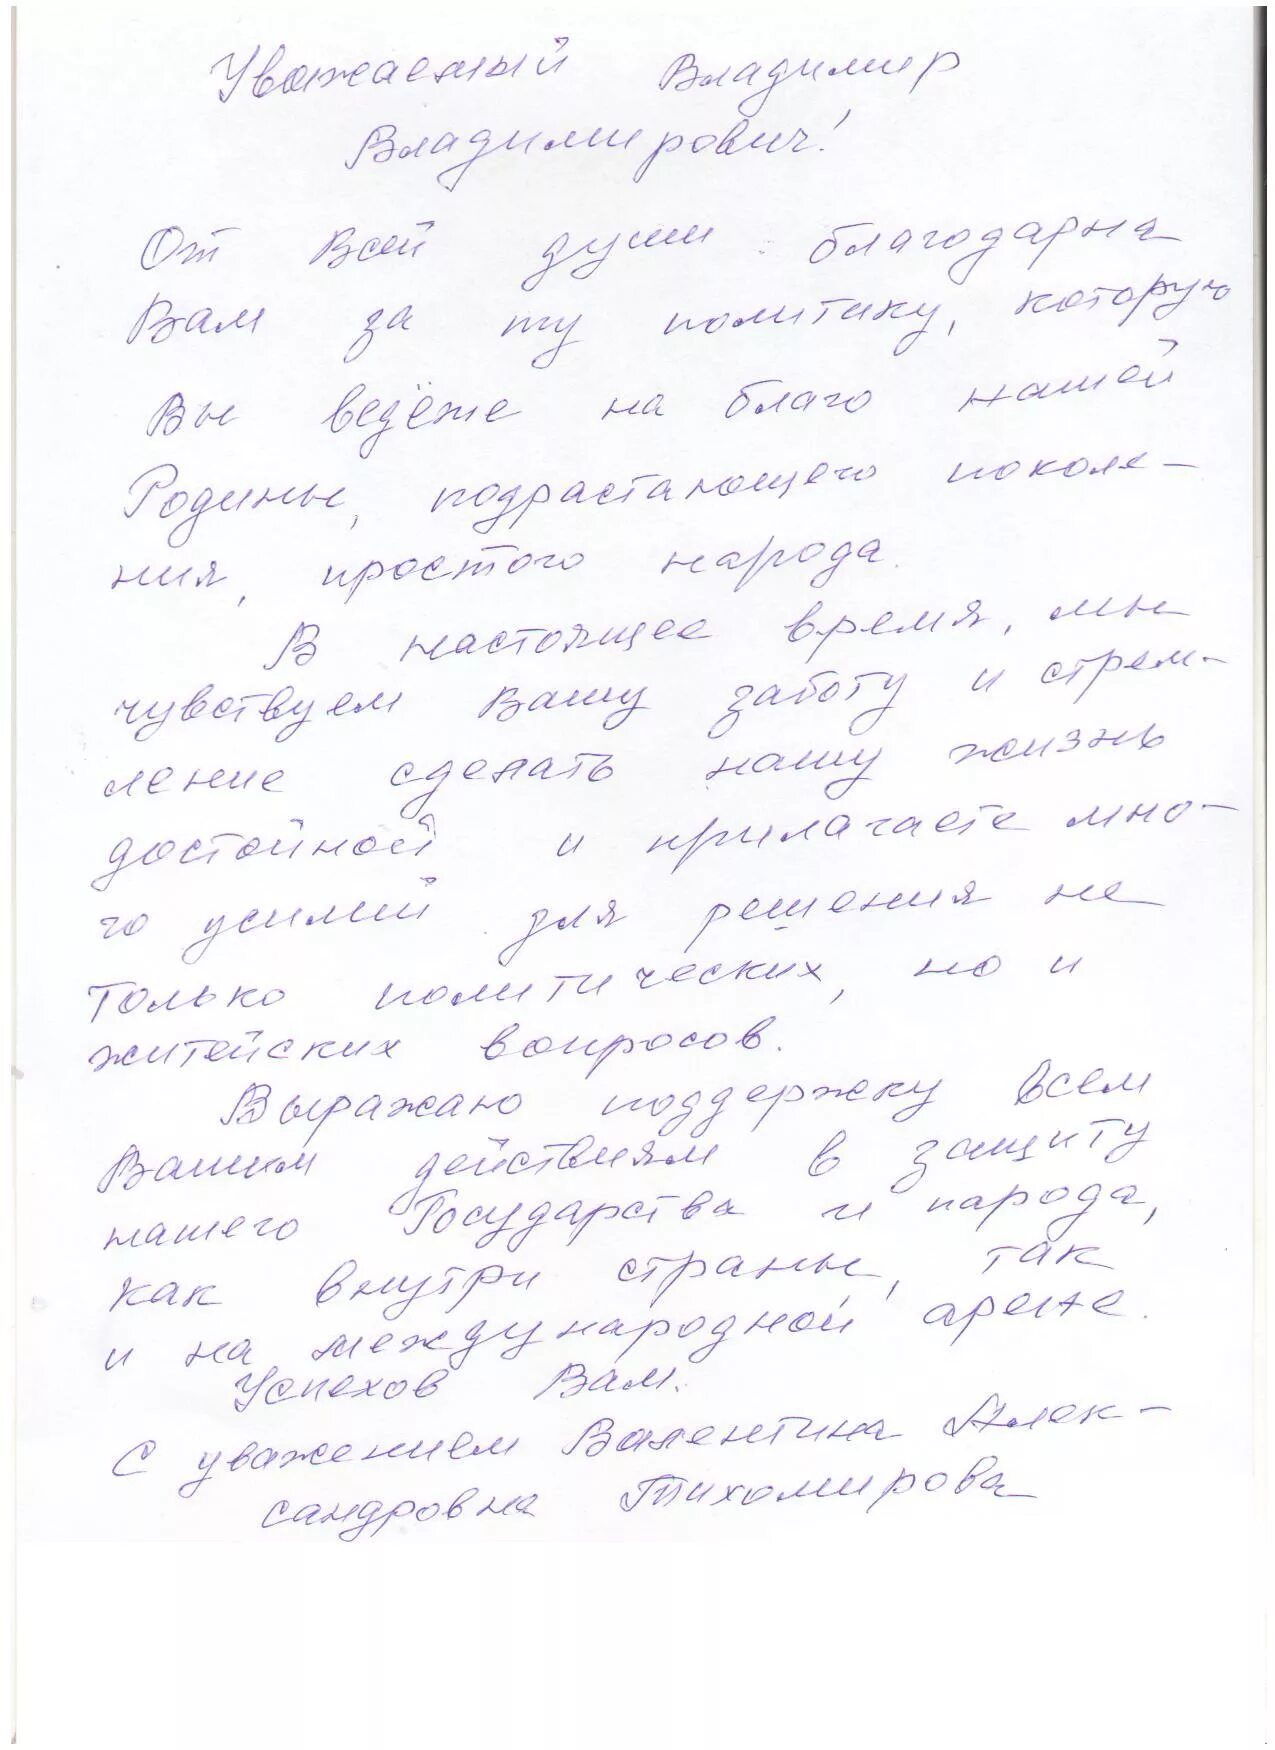 Уважаемый Владимир
Владимирович!
От всей души благодарна
Вам за ту политику, которую
Вы ведёте на благо нашей
Родины, подрастающего поколе-
ния, простого народа.
В настоящее время, мы
чувствуем Вашу заботу и стрем-
ление сделать нашу жизнь
достойной и прилагаете мно-
го усилий для решения не
только политических, но и
житейских вопросов.
Выражаю поддержку всем
Вашим действиям в защиту
нашего Государства и народа,
как внутри страны, так
и на международной арене.
Успехов Вам.
С уважением Валентина Алек-
сандровна Тихомирова